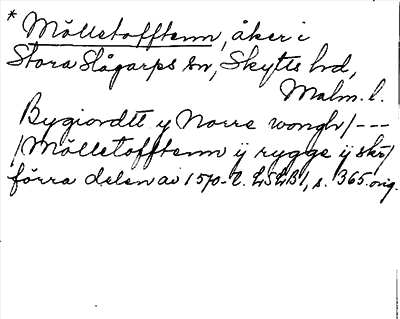 * Mölletofftenn, åker i
Stora Slågarps sn, Skytts hd,
Malm. l.
Bygiordtt y Norre wongh/---
/Mölletofftenn ij rygge ij skr/
förra delen av 1570-t. LSLB 1, s. 365. orig.